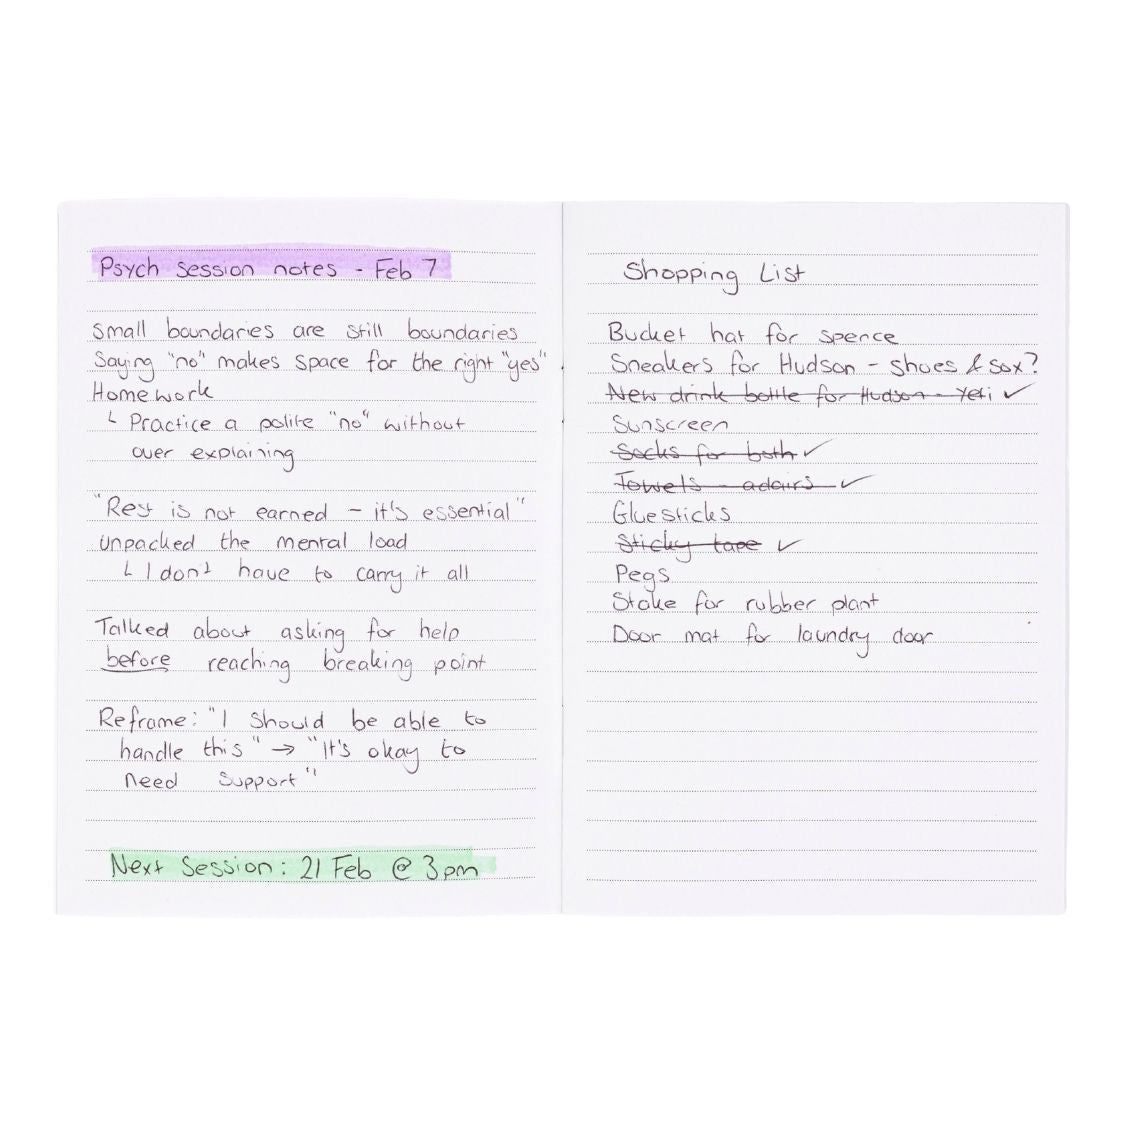 Psych session notes - Feb 7
Small boundaries are still boundaries
Saying "no" makes space for the right "yes"
Homework
└ Practice a polite "no" without
over explaining
"Rest is not earned - it's essential"
Unpacked the mental load
└ I don't have to carry it all
Talked about asking for help
before reaching breaking point
Reframe: "I should be able to
handle this" → "It's okay to
need support"
Next Session: 21 Feb @ 3pm
Shopping List
Bucket hat for spence
Sneakers for Hudson - shoes & sox?
New drink bottle for Hudson - Yeti ✓
Sunscreen
Socks for both ✓
Towels - adairs ✓
Gluesticks
Sticky tape ✓
Pegs
Stake for rubber plant
Door mat for laundry door